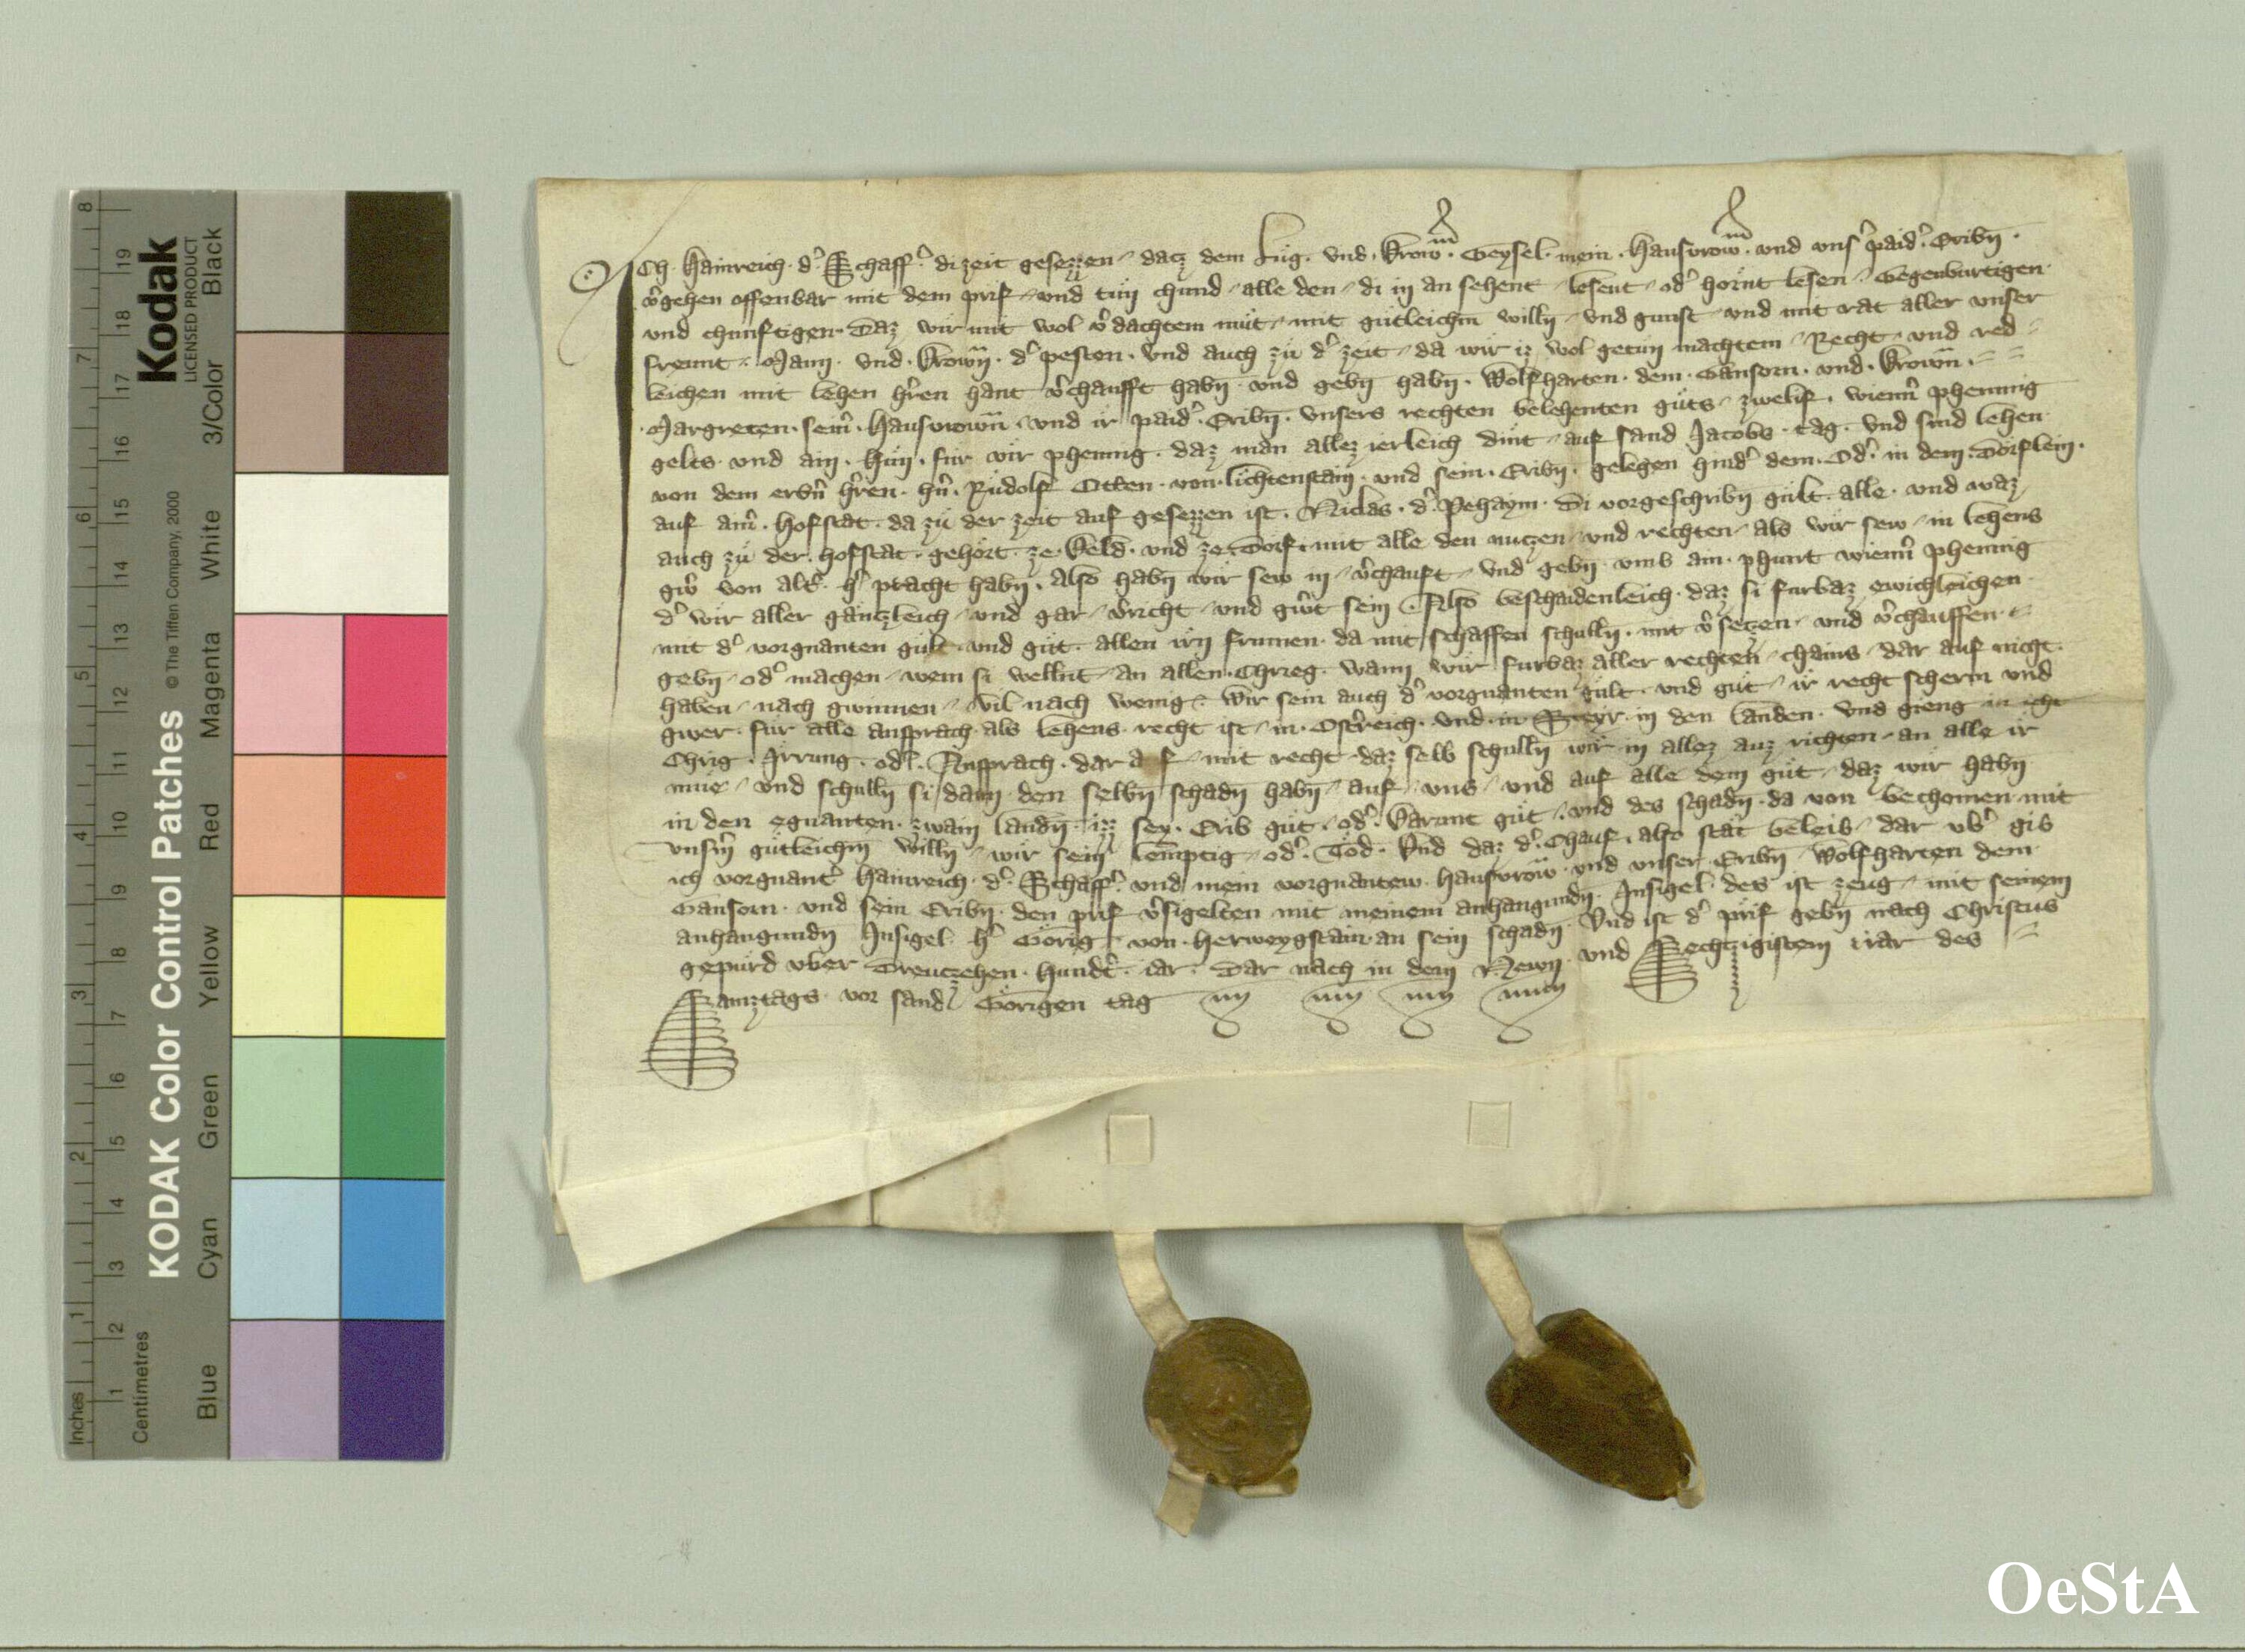 8
7
6
5
4
3
2
1
Inches
19
18
17
16
15
14
13
12
11
10
9
8
7
6
5
4
3
2
1
Centimetres
KODAK Color Control Patches © The Tiffen Company, 2000
Kodak
LICENSED PRODUCT
Blue Cyan Green Yellow Red Magenta White 3/Color Black
Ich · Hainreich · d' · Schaff' · di zeit gesezzen · dacz dem · und · vrow · Geysel · mein · Hausvrow · und uns' paid' · Eribn ·
v'gehen offenbar mit dem prif · und tun chund · alle den · di in an sehent · lesent · od' hörnt lesen · Gegenburtigen
und chunftigen · Daz wir mit wol v'dachtem müt · mit gütleichm willn · und gunst · und mit rat aller unser
freunt · Mann · und · vrown · d' pesten · und auch zü d' zeit · da wir iz wol getün machtem · Recht · und red
leichen mit lehen h'ren hant v'chaufft habn · und gebn habn · Wolfharten · dem · Gansorn · und · vrown ·
Margreten · sein' · Hausvrown · und ir paid' · Eribn · unsers rechten belehenten güts · zwelif · wienn' phennig
gelts · und ain · Hün · für vir phennig · daz man allez ierleich dint · auf sand Jacobs · tag · und sind lehen
von dem erb'n h'ren · h'n · Rüdolf Otten · von · lichtenstain · und sein · Eribn · gelegen hind' dem · Od' · in dem · Dörflein ·
auf ain' · Hofstat · da zü der zeit auf gesezzen ist · Niclas · d' Pehaym · Di vorgeschribn gült · alle · und waz
auch zü der · Hofstat · gehört · ze · veld · und ze · Dorf · mit alle den nutzen · und rechten · als wir sew · in lehens
gw'r von alt' · h' pracht habn · Also habn wir sew in · v'chauft · und gebn · umb ain · phunt wienn' phennig
d' wir aller gänczleich · und gar · v'richt · und gw't sein · Also beschaidenleich · daz si furbaz ewichleichen
mit d' vorgnanten gült · und güt · allen irn frumen · da mit schaffen schulln · mit v'seczen · und v'chauffen ·
gebn · od' machen · wem si wellnt · an allen · Chrieg · wann wir furbaz aller rechten · chains · dar auf nicht ·
haben · nach gwinnen · vil nach wenig · Wir sein auch d' vorgnanten gült · und güt · ir recht scherm und
gwer · für alle ansprach · als lehens · recht ist · in · Ost'reich · und · in Steyr · in den landen · und gieng in icht
Chrig · Irrung · od' · Ansprach · dar a f · mit recht · daz selb schulln wir in allez auz richten · an alle ir
müe · und schulln si dann · den selbn schadn habn · auf · uns · und auf alle dem güt · daz wir habn
in den egnanten · zwain landn · izz sey · Erib güt · od' · varunt güt · und des schadn · da von bechomen mit
unserm gütleichm willn · wir sein lemptig · od' · Tod · und daz d' · Chauf · also stät beleib · dar ub' gib
ich vorgnant' Hainreich · d' · Schaff' · und mein vorgnantew · Hausvrow · und unser · Eribn · Wolfharten dem
Gansorn · und sein Eribn · den prif v'sigelten mit meinem anhangundn · Insigel · des ist zeug · mit seinem
anhangundn Insigel · h' Görig · von · Herweygstain · an sein schadn · Und ist d' prif gebn nach Christus
gepürd uber Dreuczehen · hund't · iar · Dar nach in dem Newn und Sechzigistem iar des
Samztags · vor sand Görigen tag
OeStA